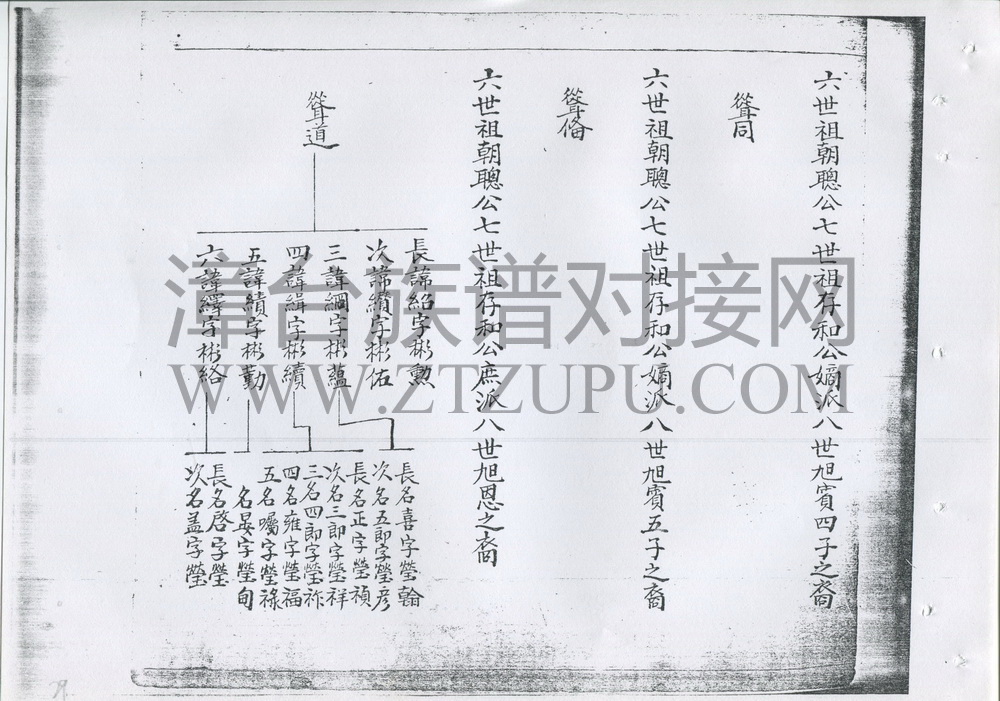 六世祖朝聰公七世祖存和公嫡派八世旭賓四子之裔
聳同
六世祖朝聰公七世祖存和公嫡派八世旭賓五子之裔
聳俻
六世祖朝聰公七世祖存和公庶派八世旭恩之裔
聳道
長諱紹字彬勲
次諱纘字彬佑
三諱綱字彬蘊
四諱緝字彬續
五諱績字彬勤
六諱繹字彬絡
長名喜字瑩翰
次名五郎字瑩彦
長名正字瑩禎
次名三郎字瑩祥
三名四郎字瑩祚
四名雍字瑩福
五名囑字瑩祿
名晏字瑩旬
長名啓字瑩
次名盖字瑩
漳台族谱对接网
WWW.ZTZUPU.COM